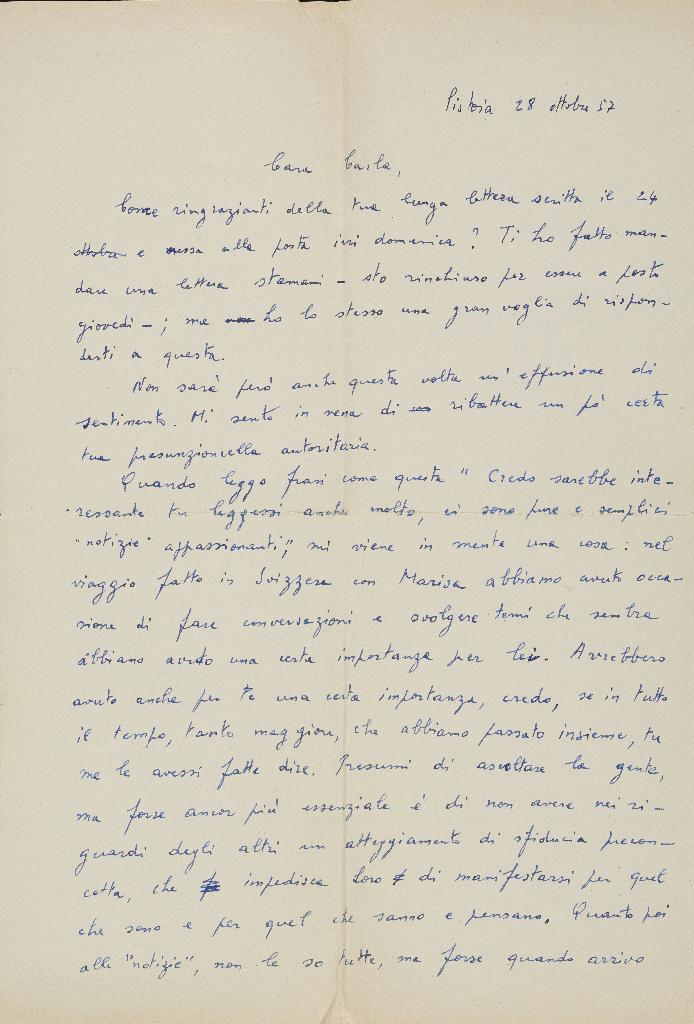 Pistoia 28 ottobre 57
Cara Carla,
Come ringrazianti della tua lunga lettera scritta il 24
ottobre e messa alla posta ieri domenica? Ti ho fatto man-
dare una lettera stamani – sto rinchiuso per essere a posto
giovedì –; ma ho lo stesso una gran voglia di rispon-
derti a questa.
Non sarà però anche questa volta un' effusione di
sentimento. Mi sento in vena di ribattere un pò certa
tua presunzioncella autoritaria.
Quando leggo frasi come questa " Credo sarebbe inte-
ressante tu leggessi anche molto, ci sono pure e semplici
"notizie" appassionanti", mi viene in mente una cosa: nel
viaggio fatto in Svizzera con Marisa abbiamo avuto occa-
sione di fare conversazioni e svolgere temi che sembra
abbiano avuto una certa importanza per lei. Avrebbero
avuto anche per te una certa importanza, credo, se in tutto
il tempo, tanto maggiore, che abbiamo passato insieme, tu
me le avessi fatte dire. Presumi di ascoltare la gente,
ma forse ancor più essenziale è di non avere nei ri-
guardi degli altri un atteggiamento di sfiducia precon-
cetta, che impedisca loro di manifestarsi per quel
che sono e per quel che sanno e pensano. Quanto poi
alle "notizie", non le so tutte, ma forse quando arrivo